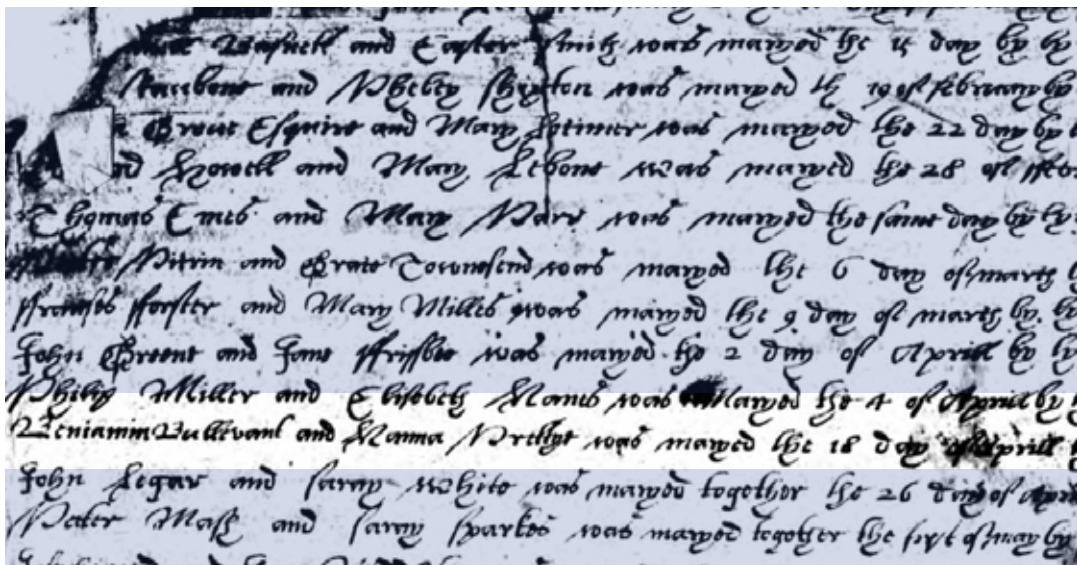 and Easter Smith was maryed the 15 day by by
and Phebey was maryed th 19 of february by
Grout Esquire and Mary Lotimer was maryed the 22 day by
Howell and Mary Lebone was maryed the 28 of
Thomas Emes and Mary Pare was maryed the same day by by
Pitrin and Grate Townesend was maryed the 6 day of marth
ffranses fforster and Mary Milles was maryed the 9 day of marth by. by
John Greene and Jane ffrissbee was maryed the 2 day of Aprill by by
Philip Miller and Elisebeth Manes was Maryed the 4 of Aprill by
Beniamin Bullevant and Hanna Prettye was maryed the 18 day of Aprill
John Legar and saray white was maryed together the 26 day of
Peter Mass and saray sparkes was maryed together the first of may by